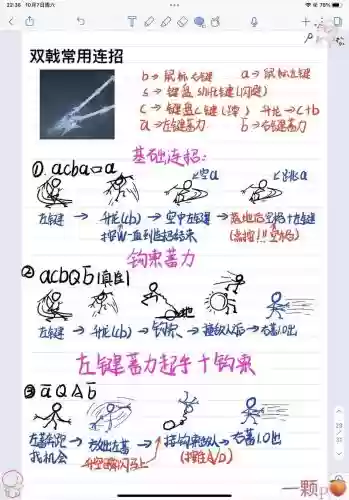 22:36 10月7日周六
78%
双戟常用连招
b → 鼠标右键 a → 鼠标左键
s → 键盘 shift键 (闪避)
c → 键盘c键 (蹲) 升龙 → c+b
a̅ → 左键蓄力 b̅ → 右键蓄力
基础连招:
①. acba□a
空a 跳a
左键 → 升龙(cb) → 空中左键 → 落地后空格+左键
按W一直到连招结束 (点按!!空格)
钩束蓄力
② acbQb̅
左键 → 升龙(cb) → 钩束 → → 右蓄1.0出
左键蓄力起手+钩束
③ a̅QAb̅
左蓄 → 放出左蓄 → 接钩束 → 右蓄1.0出
找机会 (按住A/D)
29
一颗p